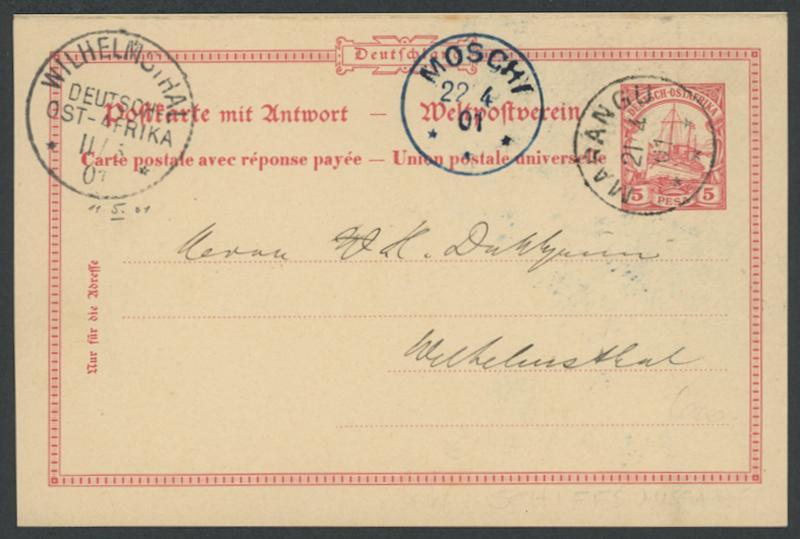 Deutschland
Postkarte mit Antwort — Weltpostverein
Carte postale avec réponse payée — Union postale universelle
WILHELMSTHAL
DEUTSCH-
OST-AFRIKA
11/5
01
11 5. 01
MOSCHI
22 4
01
MARANGU
21 4
01
DEUTSCH-OSTAFRIKA
5 PESA 5
Nur für die Adresse
Herrn H.
Wilhelmsthal